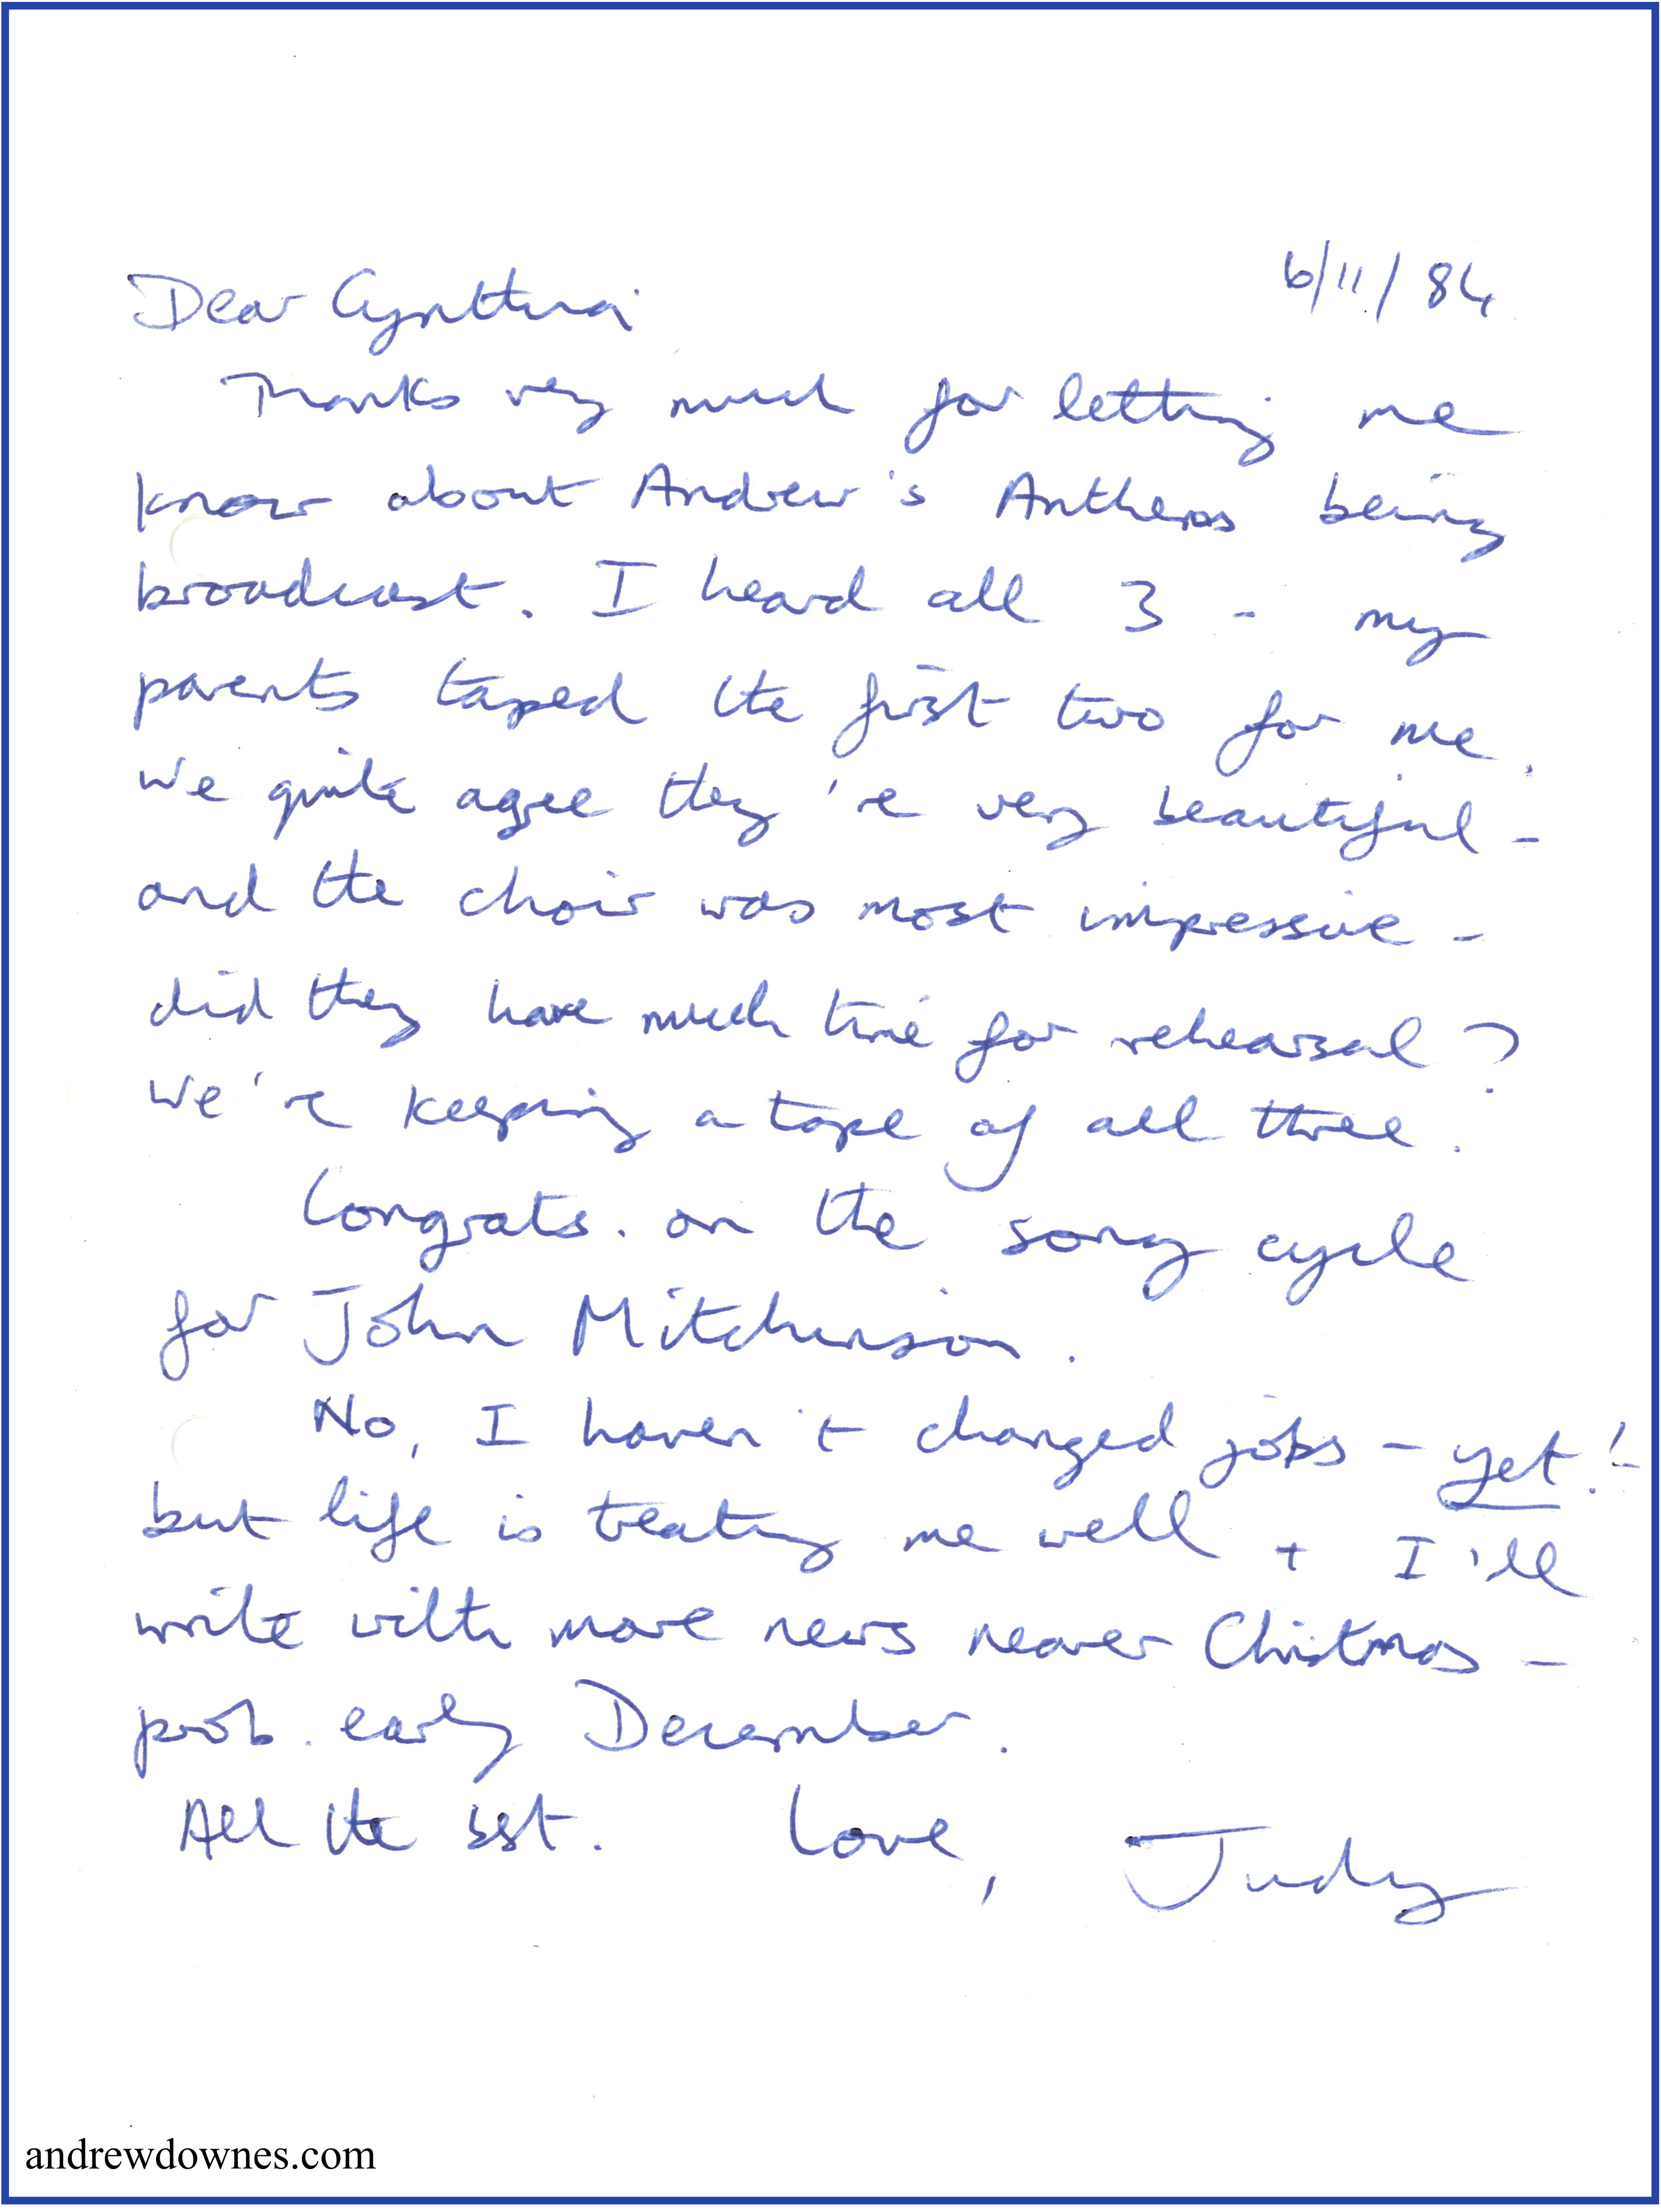 6/11/84
Dear Cynthia
Thanks very much for letting me
know about Andrew's Anthems being
broadcast. I heard all 3 - my
parents taped the first two for me.
We quite agree they're very beautiful -
and the choir was most impressive -
did they have much time for rehearsal?
We're keeping a tape of all three.
Congrats. on the song cycle
for John Mitchinson.
No, I haven't changed jobs - yet! -
but life is treating me well + I'll
write with more news nearer Christmas -
prob. early December.
All the best. Love, Judy
andrewdownes.com